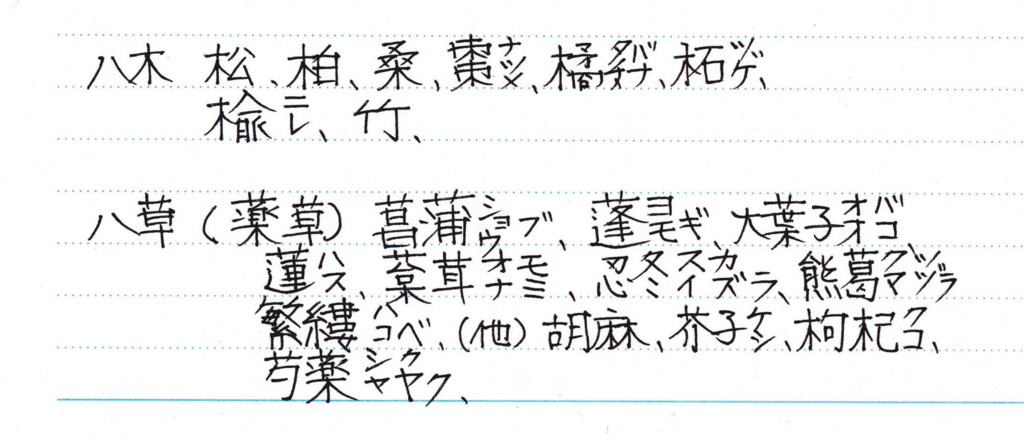 八木 松、柏、桑、棗ナツメ、橘タチバナ、柘ツゲ、
楡ニレ、竹、
八草（薬草）菖蒲ショウブ、蓬ヨモギ、大葉子オオバコ、
蓮ハス、葈茸オナモミ、忍冬スイカズラ、熊葛クマツヅラ
繁縷ハコベ、（他）胡麻、芥子ケシ、枸杞クコ、
芍薬シャクヤク、